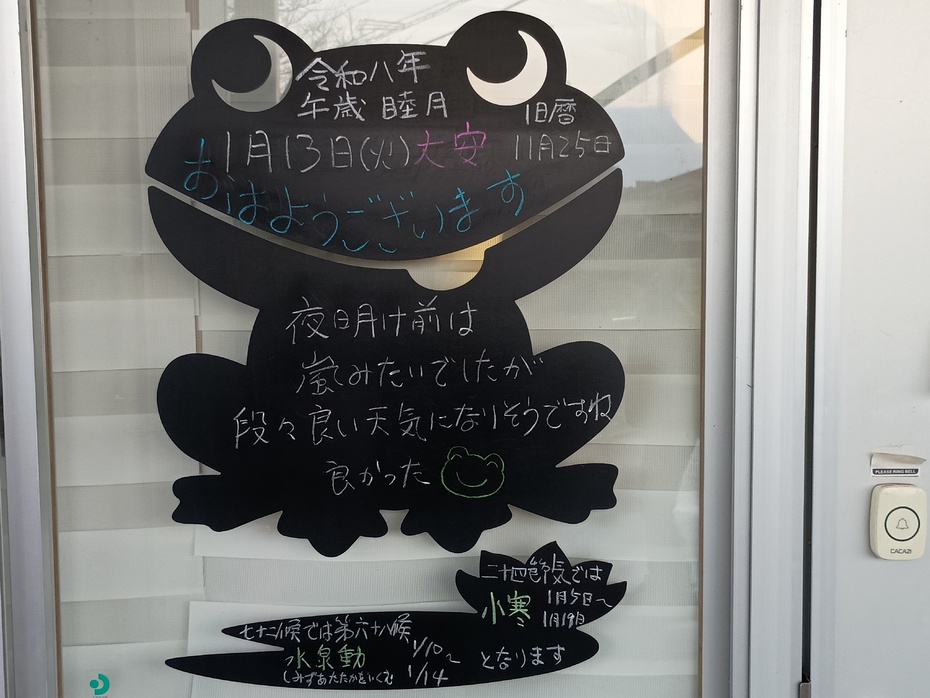 令和八年
午歳 睦月
旧暦
1月13日(火)大安 11月25日
おはようございます
夜日月け前は
嵐みたいでしたが
段々良い天気になりそうですね
良かった
二十四節気では
小寒 1月5日~
1月19日
七十二候では第六十八候
水泉動 1/10~
しみずあたたかをふくむ 1/14
となります
PLEASE RING BELL
CACAZI